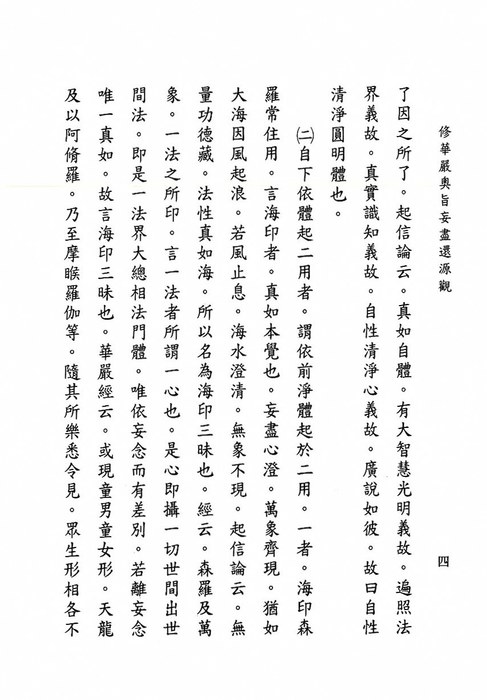 修華嚴奧旨妄盡還源觀
四
了因之所了。起信論云。真如自體。有大智慧光明義故。遍照法
界義故。真實識知義故。自性清淨心義故。廣說如彼。故曰自性
清淨圓明體也。
㈡自下依體起二用者。謂依前淨體起於二用。一者。海印森
羅常住用。言海印者。真如本覺也。妄盡心澄。萬象齊現。猶如
大海因風起浪。若風止息。海水澄清。無象不現。起信論云。無
量功德藏。法性真如海。所以名為海印三昧也。經云。森羅及萬
象。一法之所印。言一法者所謂一心也。是心即攝一切世間出世
間法。即是一法界大總相法門體。唯依妄念而有差別。若離妄念
唯一真如。故言海印三昧也。華嚴經云。或現童男童女形。天龍
及以阿脩羅。乃至摩睺羅伽等。隨其所樂悉令見。眾生形相各不